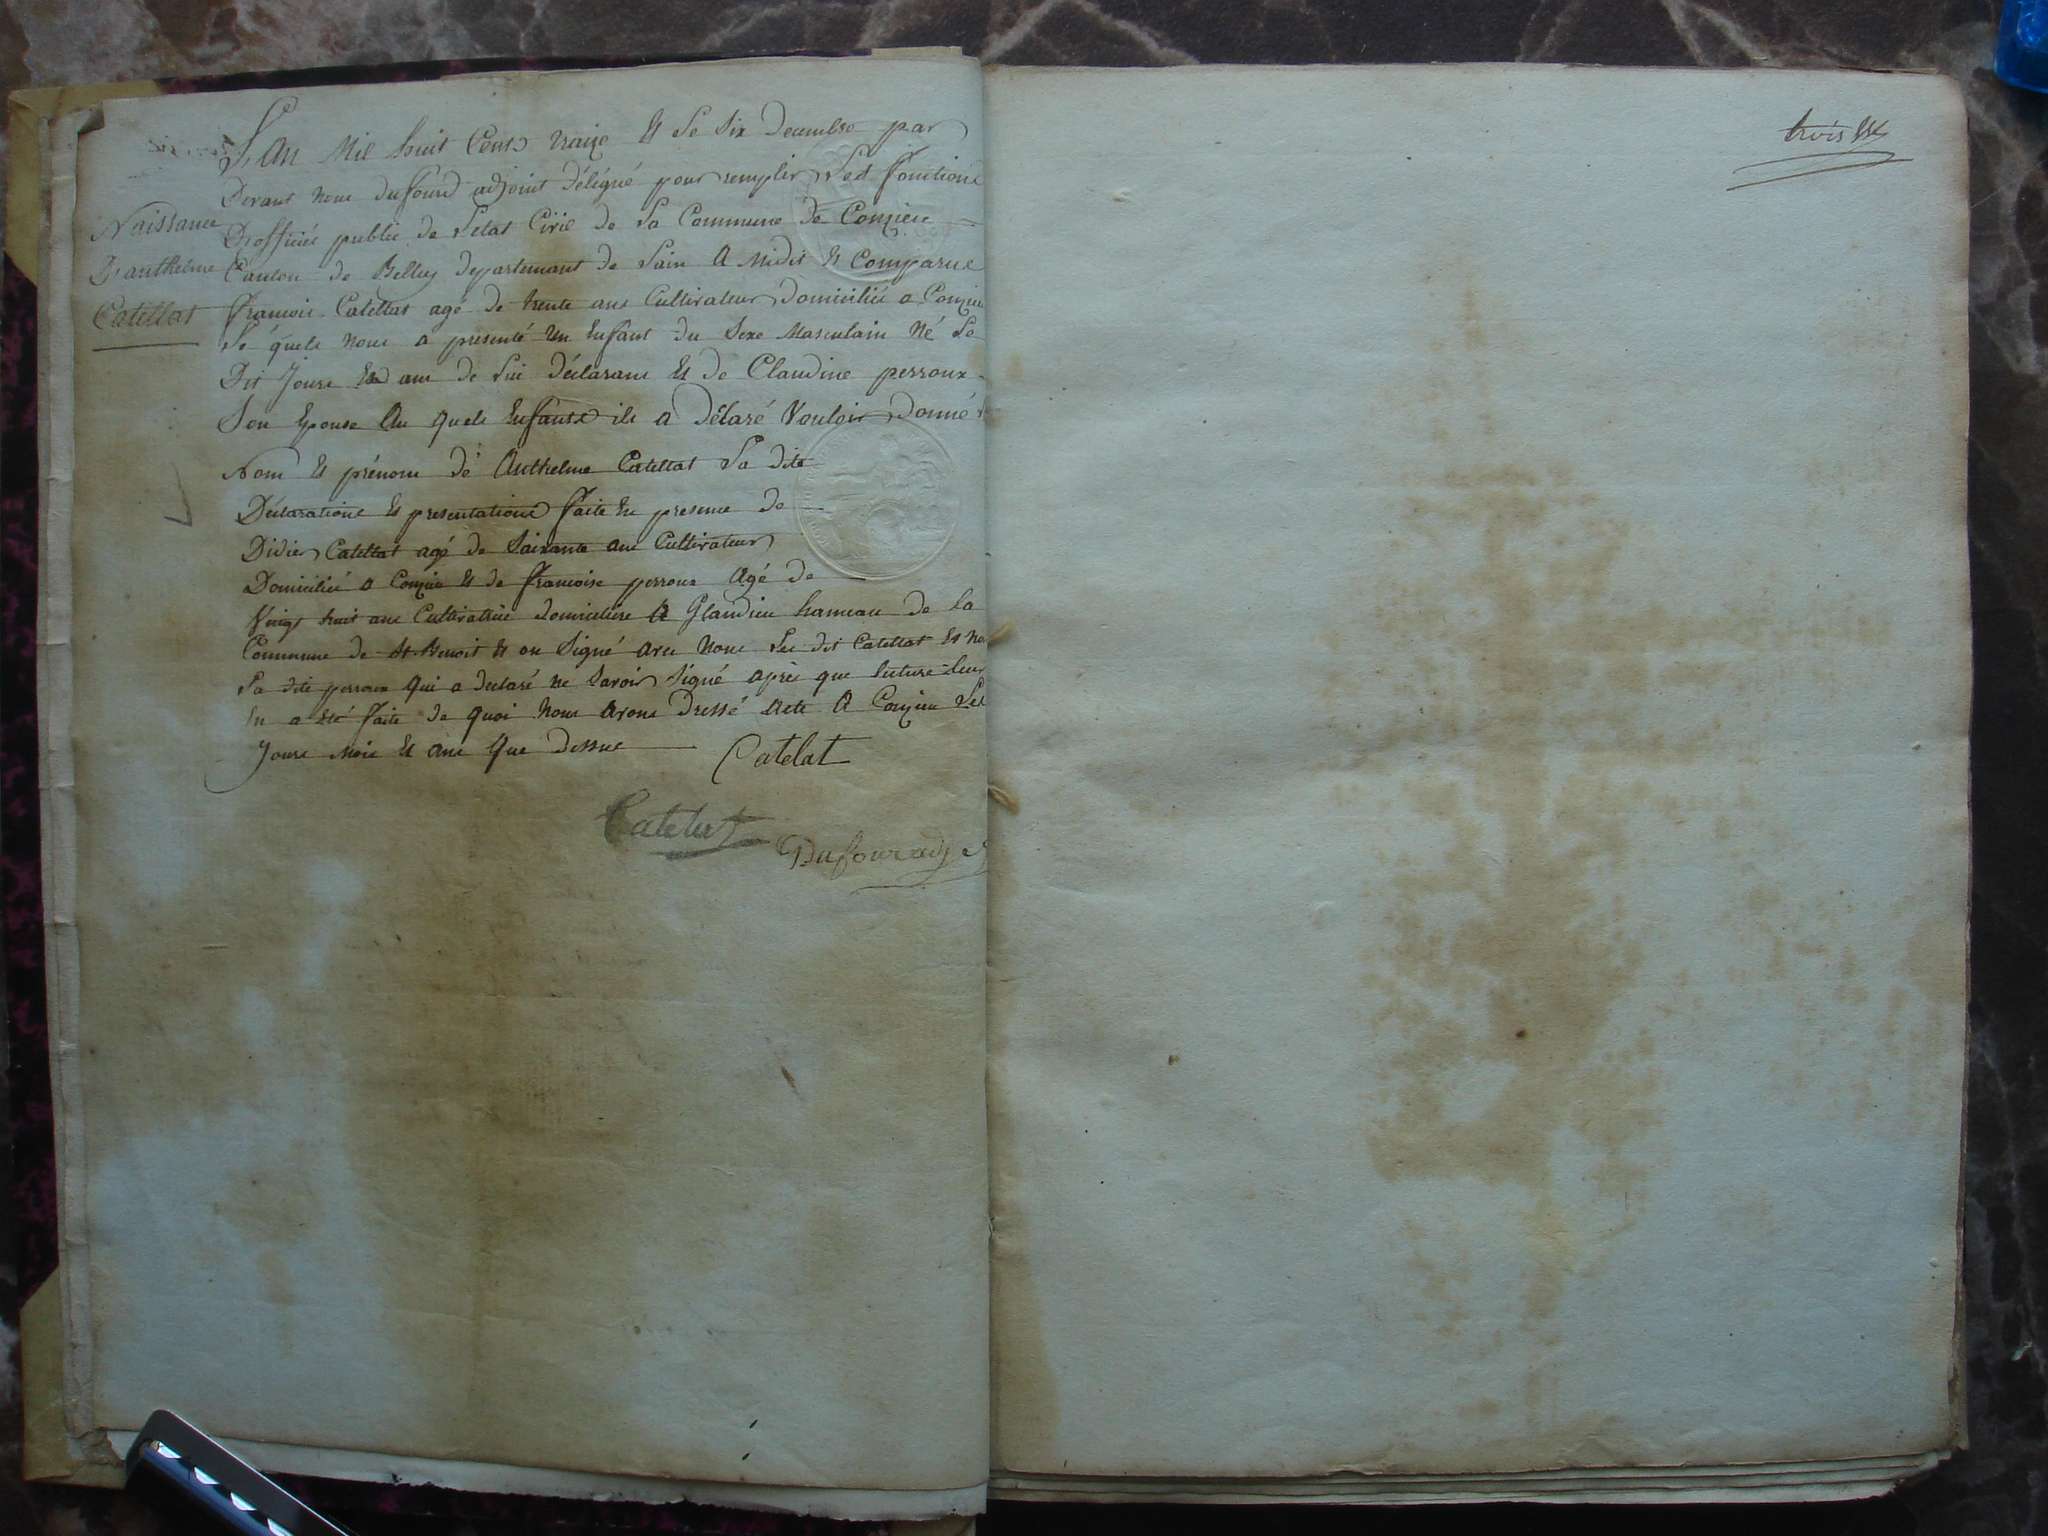 L'An Mil huit Cent traize Et Le Six Decembre par
Devant nous Duffourd adjoint délégué pour remplir Les fonctions
D'officiée public de Letat Civil de La Commune de Conzieu
Canton de Belley departement de Lain A Midit Et Comparue
francois Catellat agé de trente ans Cultivateur Domicilié a Conzieu
Le quele nous a presenté un Enfant du Sexe Masculain Né Le
Dit Jours End ans de Lui déclarans Et de Claudine perroux
Son Epouse Au quele Enfants ils a Délaré Vouloir Donné
Nom Et prénom de Anthelme Catellat La dite
Déclaratione Et presentatione faite En presence de
Didier Catellat agé de Soixante ans Cultivateur
Domicilié a Conzieu Et de francoise perroux Agé de
Vingt huit ans Cultivatrice domiciliée A Glandieu hameau de La
Commune de St Benoit Et on Signé avec nous Les dit Catellat Et non
La dite perroux Qui a declaré ne Savoir Signé après que Lecture Leur
En a été faite de quoi Nous Avons Dressé Acte A Conzieu Les
Jours Mois Et ans Que Dessus
Catelat
Catelat
Duffour adj
Naissance
D'anthelme
Catellat
trois